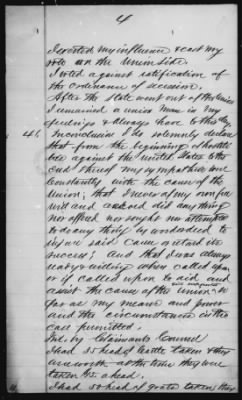 4
I exerted my influence & cast my
vote on the Union side.
I voted against ratification of
the ordinance of secession.
After the State went out of the Union
I remained a union man in my
feelings & always have to this day.
41. In conclusion I do solemnly declare
that from the beginning of hostili
ties against the United States to the
end thereof my sympathies were
constantly with the cause of the
Union; that I never of my own free
will and accord did any thing
nor offered nor sought nor attempted
to do any thing by word or deed to
injure said cause or retard its
success; and that I was always
ready & willing when called upon
or if called upon to aid and
assist the cause of the Union
so far as my means and power
and the circumstances in the
case permitted.
Int. by Claimants Counsel
I had 35 head of Cattle taken & they
were worth at the time they were
taken a head.
I had 50 head of goats taken they